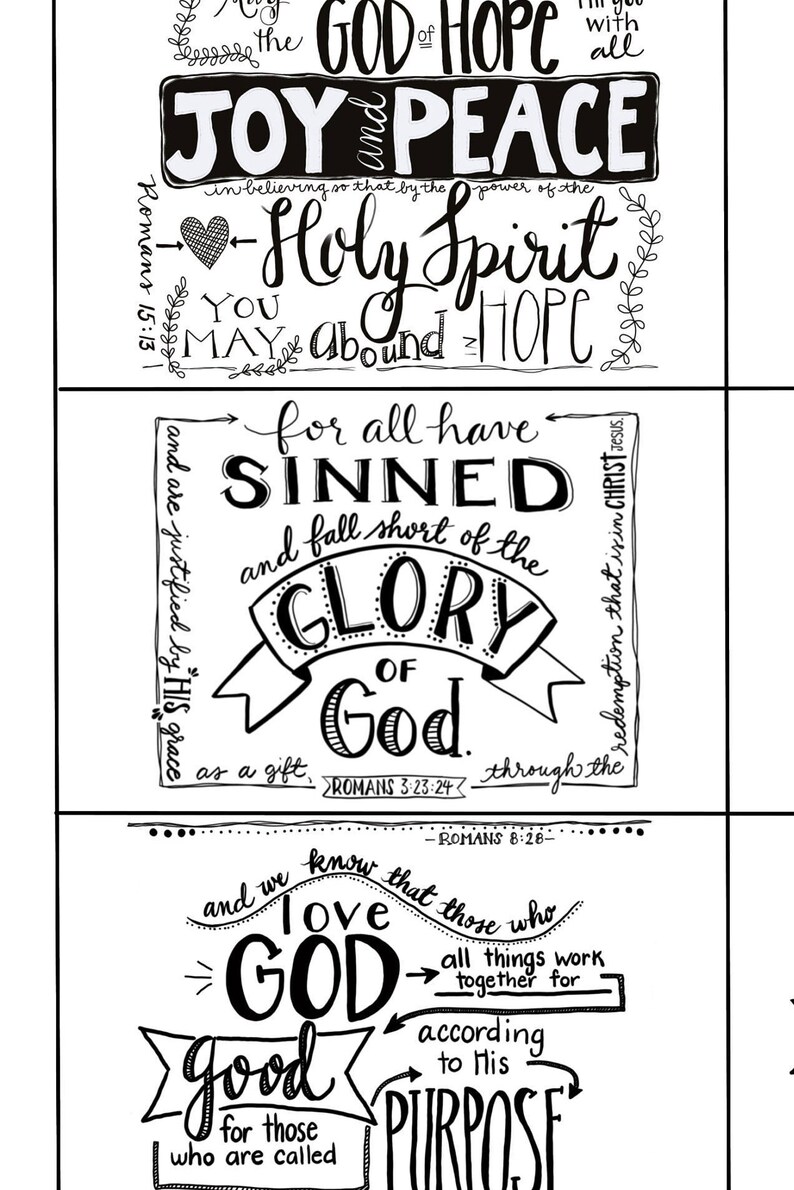 May
the GOD of HOPE
with
all
JOY and PEACE
in believing so that by the power of the
Holy Spirit
YOU
MAY abound IN HOPE
Romans 15:13
for all have
SINNED
and fall short of the
GLORY
OF
God.
and are justified by HIS grace
as a gift,
through the
redemption that is in CHRIST JESUS.
ROMANS 3:23-24
-ROMANS 8:28-
and we know that those who
love
GOD
all things work
together for
good
for those
who are called
according
to His
PURPOSE